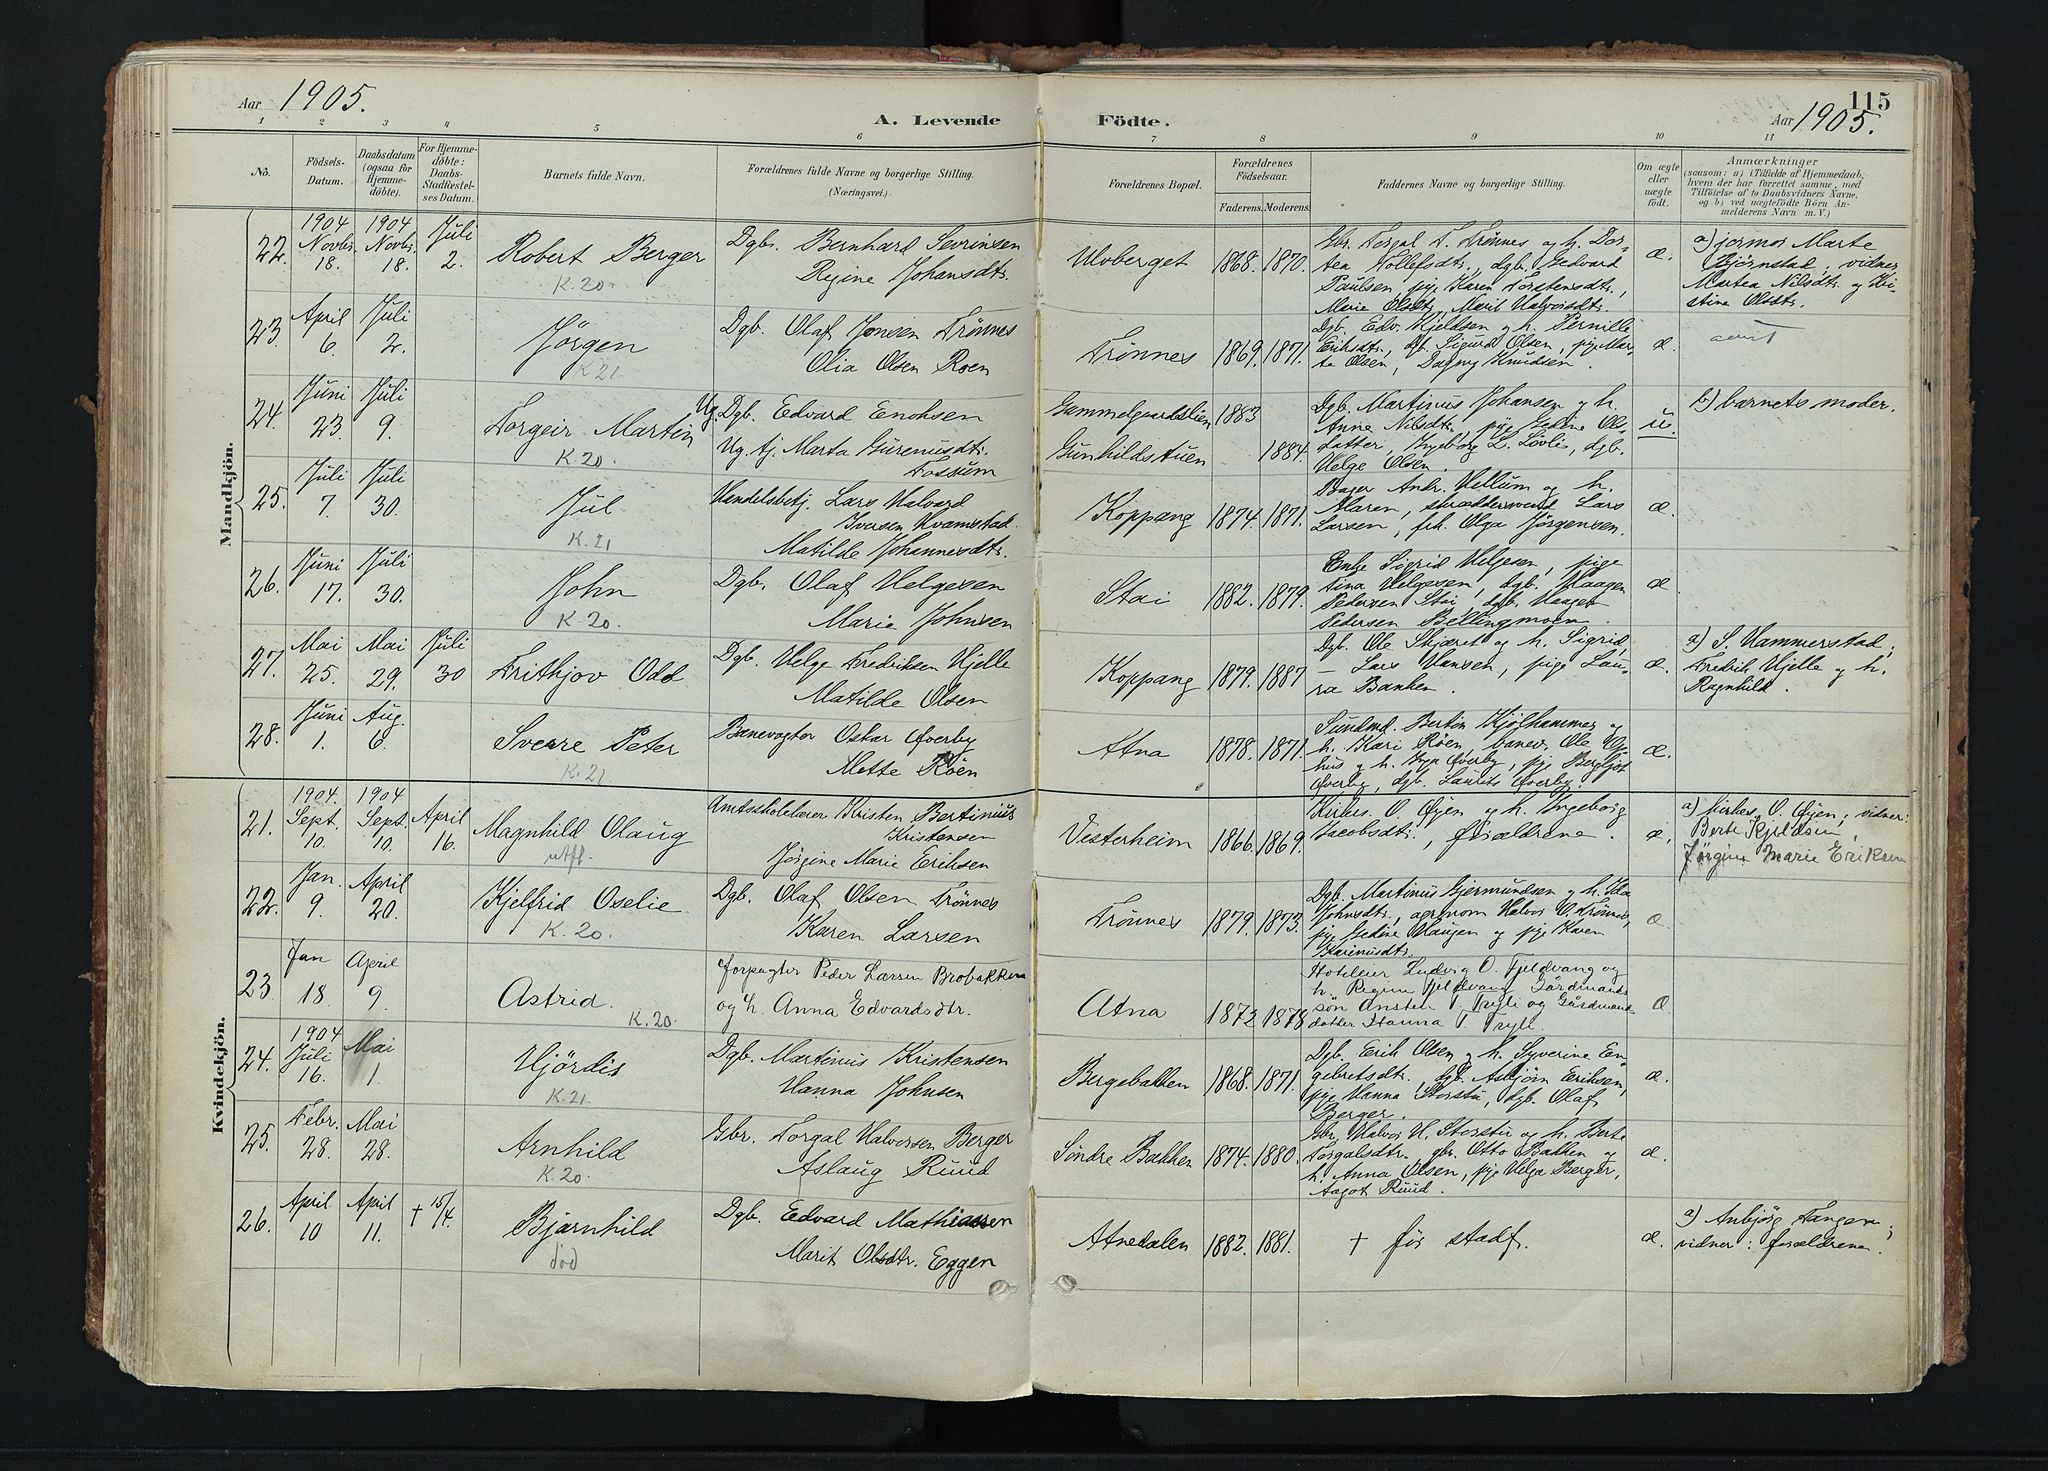 Aar 1905.
A. Levende Födte.
115
Aar 1905.
1 2 3 4 5 6 7 8 9 10 11
No.
Födsels-Datum.
Daabsdatum (ogsaa for Hjemmedöbte).
For Hjemmedöbte: Daabs-Stadfæstelses Datum.
Barnets fulde Navn.
Forældrenes fulde Navne og borgerlige Stilling. (Næringsvei.)
Forældrenes Bopæl.
Forældrenes Födselsaar.
Faderens. Moderens.
Faddernes Navne og borgerlige Stilling.
Om ægte eller uægte födt.
Anmærkninger
(saasom: a) i Tilfælde af Hjemmedaab, hvem der har forrettet samme, med Tilföielse af to Daabsvidners Navne. og b) ved uægtefödte Börn Anmelderens Navn m. V.)
Mandkjön.
22. 1904 Novbr. 18. 1904 Novbr. 18. Juli 2.
Robert Berger
K. 20.
Dgb. Bernhard Sevrinsen
Regine Johansdtr.
Ulvberget 1868. 1870.
Gbr. Torgal T. Trønnes og h. Dor-
tea Tollefsdtr., dgb. Gedvard
Paulsen, pige Karen Torstensdtr.,
Marie Olsdtr., Marit Halvorsdtr.
æ.
a) jormor Marte
Bjørnstad; vidner
Martea Nilsdtr. og Kri-
stine Olsdtr.
23. April 6. Juli 2.
Jørgen
K 21.
Dgb. Olaf Jonsen Trønnes
Olia Olsen Roen
Trønnes 1869. 1871.
Dgb. Edv. Kjeldsen og h. Pernille
Eriksdtr., dgb. Sigurd Olsen, pige Mar-
te Olsen, Dagny Knudsen.
æ.
24. Juni 23. Juli 9.
Torgeir Martin
K. 20.
Ug. Dgb. Edvard Enoksen
Ug. tj. Marta Guremusdtr.
Fossum
Gammelgaardslien 1883
Gunhildstuen 1884.
Dgb. Martinus Johansen og h.
Anne Nilsdtr., pige Gedine Ols-
datter, Ingeborg L. Løvli, dgb.
Helge Olsen.
u.
b) barnets moder.
25. Juli 7. Juli 30.
Jul
K. 21
Handelsbetj. Lars Halvard
Iversen Kvamstad.
Matilde Johannesdtr.
Koppang 1874. 1871.
Bager Andr. Hellum og h.
Maren, skræddersvend Lars
Larsen, frk. Olga Jørgensen.
æ.
26. Juni 17. Juli 30.
John
K. 20.
Dgb. Olaf Helgesen
Marie Johnsen
Stai 1882. 1879.
Enke Sigrid Helgesen, pige
Tina Helgesen, dgb. Haagen
Pedersen Stai, dgb. Haagen
Pedersen Bellingmoen.
æ.
27. Mai 25. Mai 29. Juli 30
Frithjov Odd
Dgb. Helge Fredriksen Hjelle
Matilde Olsen
Koppang 1879. 1887
Dgb. Ole Skjæret og h. Sigrid,
— Lars Hansen, pige Lau-
ra Bakken.
æ.
a) S. Hammerstad;
Fredrik Hjelle og h.
Ragnhild.
28. Juni 1. Aug. 6.
Sverre Peter
K. 21.
Banevogter Oskar Øverby
Mette Røen
Atna 1878. 1871.
Bertin Kjølhammer og
h. Kari Røen, banev. Ole
og h. Inga Øverby, pige Bergljot
Øverby, dgb. Laurits Øverby.
æ.
Kvindekjön.
21. 1904. Sept. 10. 1904 Sept. 10. April 16.
Magnhild Olaug
utfl.
Amtsskolelærer Kristen Bertinius
Kristensen
Jørgine Marie Eriksen
Vesterheim 1866. 1869.
Kirkes. O. Øyen og h. Ingeborg
Jacobsdtr., forældrene.
æ.
a) kirkes. O. Øyen; vidner:
Berte Kjeldsen,
Jørgine Marie Eriksen
22. Jan. 9. April 20.
Kjelfrid Oselie
K. 20.
Dgb. Olaf Olsen Trønnes
Karen Larsen
Trønnes 1879. 1873.
Dgb. Martinus Gjermundsen og h. Ida
Johnsdtr., agronom Halvor O. Trønnes,
pige Gedine Haugen og pige Karen
Karinusdtr.
æ.
23. Jan 18. April 9.
Astrid.
K. 20.
Forpagter Peder Larsen Brobakken
og h. Anna Edvardsdtr.
Atna 1872 1878
Hoteleier Ludvig O. Fjeldvang og
h. Regine Fjeldvang Gårdmands
søn Ansten T. Tryli og Gårdmands
datter Hanna T. Tryli.
Æ.
24. 1904 Juli 16. Mai 1.
Hjördis
K. 21.
Dgb. Martinus Kristensen
Hanna Johnsen
Bergebakken 1868. 1871.
Dgb. Erik Olsen og h. Syverine En-
gebretsdtr., dgb. Asbjørn Eriksen,
pige Hanna Storstu, dgb. Olaf
Berger.
æ.
25. Febr. 28. Mai 28.
Arnhild
K. 20.
Gbr. Torgal Halvorsen Berger
Aslaug Ruud
Søndre Bakken 1874. 1880.
Gbr. Halvor H. Storstu og h. Berte
Torgalsdtr., gbr. Otto Bakken og
h. Anna Olsen, pige Helga Berger,
Aagot Ruud.
æ.
26. April 10 April 11. † 15/4.
Bjarnhild
død
Dgb. Edvard Mathiassen
Marit Olsdtr. Eggen
Atnedalen 1882. 1881.
† før stadf.
æ.
a) Anbjørg Tangen;
vidner: forældrene.